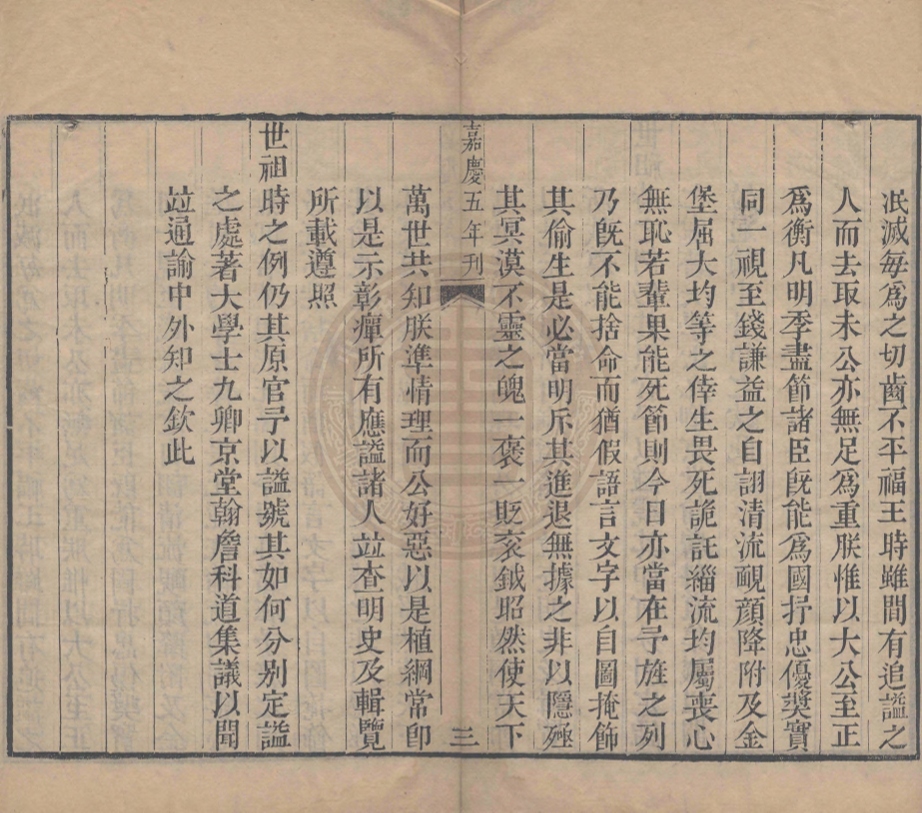 泯滅每爲之切齒不平福王時雖間有追諡之
人而去取未公亦無足爲重朕惟以大公至正
爲衡凡明季盡節諸臣旣能爲國抒忠優奬實
同一視至錢謙益之自詡清流靦顔降附及金
堡屈大均等之倖生畏死詭託緇流均屬喪心
無恥若輩果能死節則今日亦當在予旌之列
乃旣不能捨命而猶假語言文字以自圖掩飾
其偷生是必當明斥其進退無據之非以隱殛
其冥漠不靈之魄一褒一貶衮鉞昭然使天下
嘉慶五年刊
三
萬世共知朕準情理而公好惡以是植綱常即
以是示彰癉所有應諡諸人竝查明史及輯覽
所載遵照
世祖時之例仍其原官予以諡號其如何分别定諡
之處著大學士九卿京堂翰詹科道集議以聞
竝通諭中外知之欽此